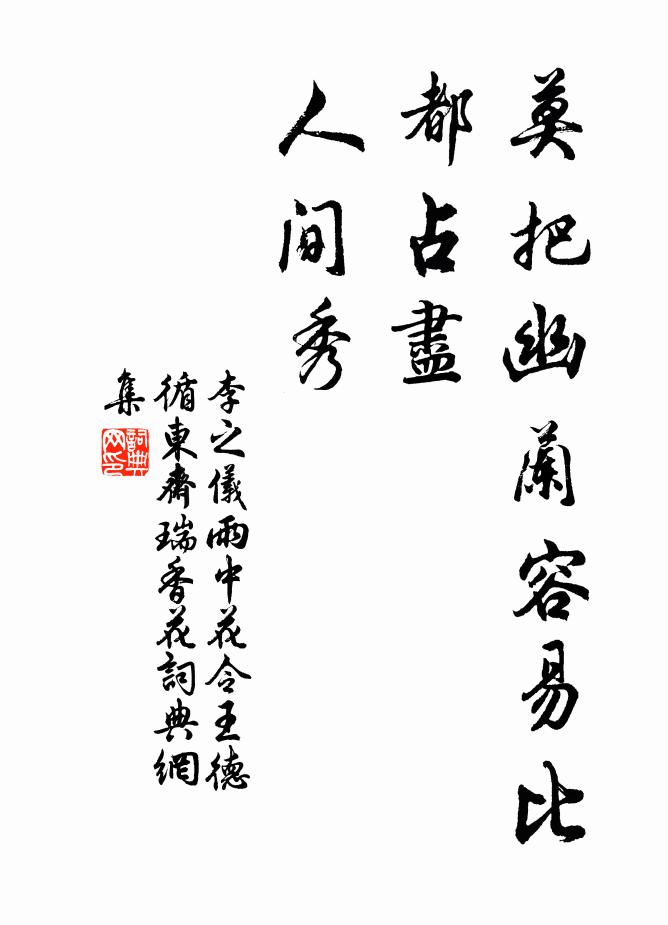 莫把幽蘭容易比
都占盡
人間秀
李之儀雨中花令王德
循東齋瑞香花詞典網
集
詞典
网印